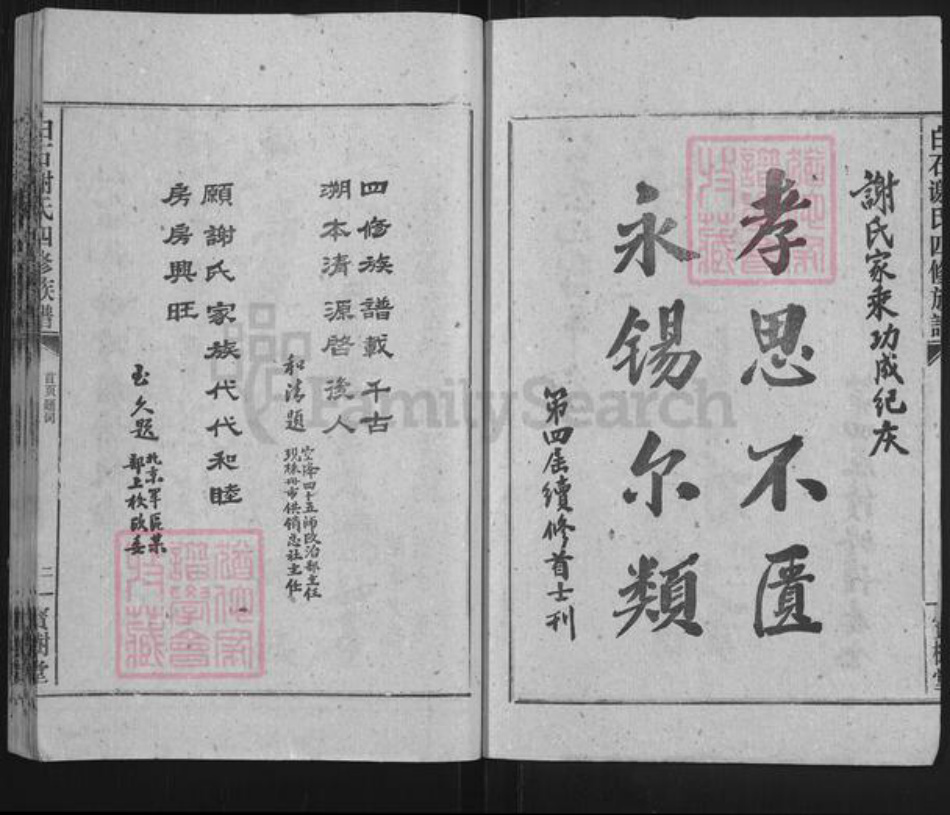 白石謝氏四修族譜
謝氏家乘功成纪庆
孝思不匱
永锡尔類
第四届續修首士刊
四修族譜載千古
溯本清源啓後人
和清題
空降四十五師政治部主任
現株州市供銷总社主任
願謝氏家族代代和睦
房房興旺
玉久題
北京軍區某
部上校政委
白石謝氏四修族譜
首頁題词
三
寶樹堂
FamilySearch
特藏